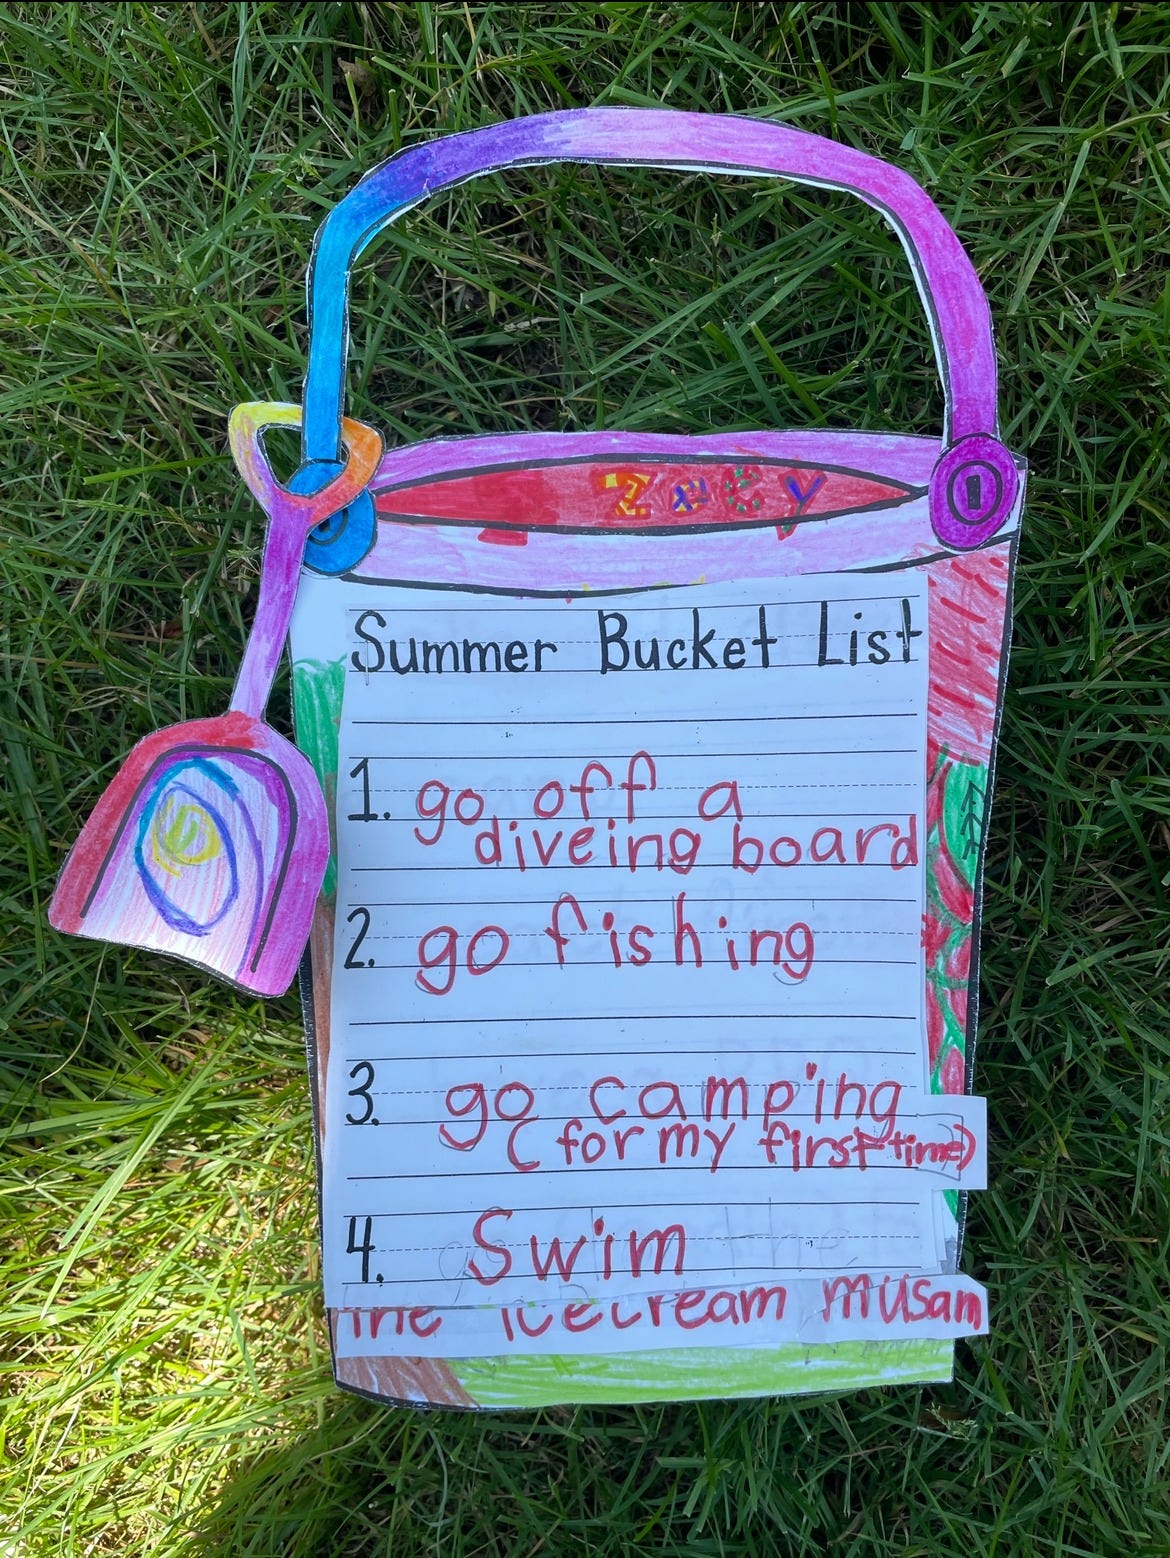 Zoey
Summer Bucket List
1. go off a
diveing board
2. go fishing
3. go camping
(for my first time)
4. Swim
the icecream musam